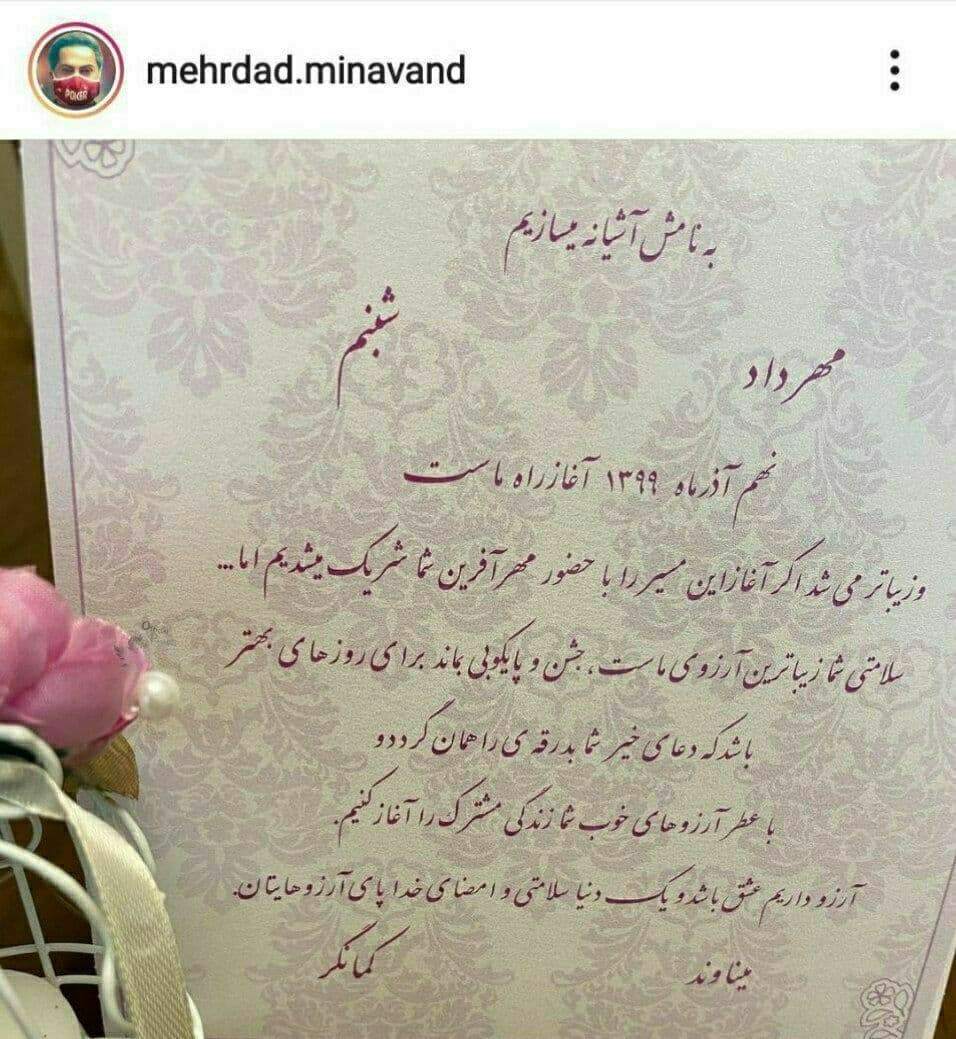 mehrdad.minavand
POKER
به نامش آشیانه میسازیم
شبنم
مهرداد
نهم آذرماه ۱۳۹۹ آغاز راه ماست
و زیباتر می شد اگر آغاز این مسیر را با حضور مهرآفرین شما شریک میشدیم اما...
سلامتی شما زیباترین آرزوی ماست، جشن و پایکوبی بماند برای روزهای بهتر
باشد که دعای خیر شما بدرقه ی راهمان گردد و
با عطر آرزوهای خوب شما زندگی مشترک را آغاز کنیم.
آرزو داریم عشق باشد و یک دنیا سلامتی و امضای خدا پای آرزوهایتان.
میناوند
کمانگر